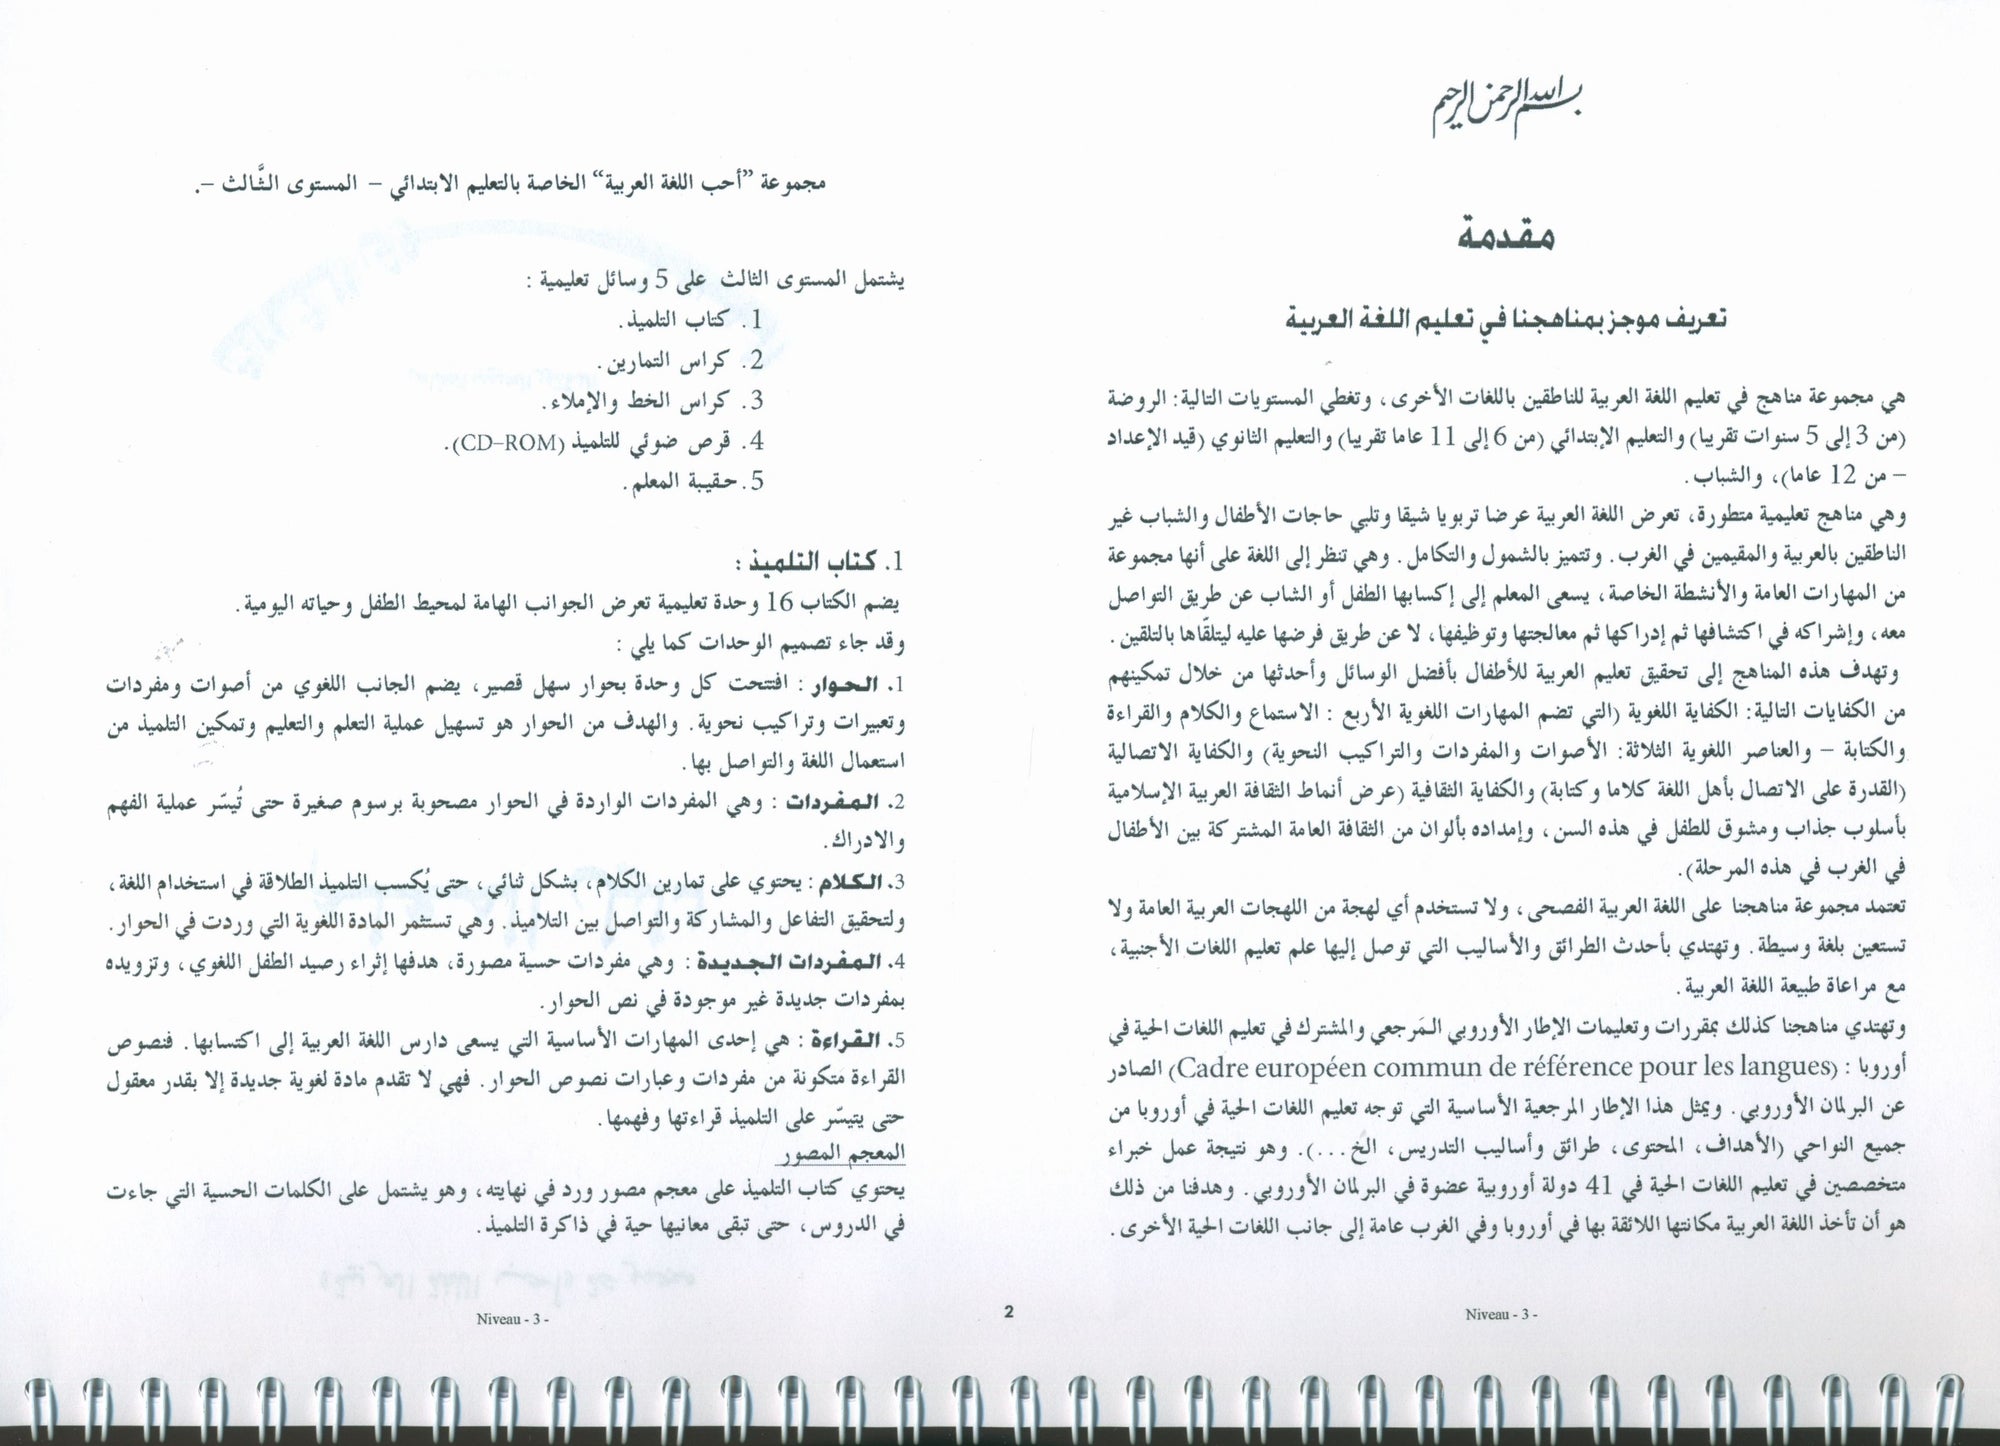 بسم الله الرحمن الرحيم
مقدمة
تعريف موجز بمناهجنا في تعليم اللغة العربية
هي مجموعة مناهج في تعليم اللغة العربية للناطقين باللغات الأخرى، وتغطي المستويات التالية: الروضة
(من 3 إلى 5 سنوات تقريبا) والتعليم الإبتدائي (من 6 إلى 11 عاما تقريبا) والتعليم الثانوي (قيد الإعداد
– من 12 عاما)، والشباب.
وهي مناهج تعليمية متطورة، تعرض اللغة العربية عرضا تربويا شيقا وتلبي حاجات الأطفال والشباب غير
الناطقين بالعربية والمقيمين في الغرب. وتتميز بالشمول والتكامل. وهي تنظر إلى اللغة على أنها مجموعة
من المهارات العامة والأنشطة الخاصة، يسعى المعلم إلى إكسابها الطفل أو الشاب عن طريق التواصل
معه، وإشراكه في اكتشافها ثم إدراكها ثم معالجتها وتوظيفها، لا عن طريق فرضها عليه ليتلقّاها بالتلقين.
وتهدف هذه المناهج إلى تحقيق تعليم العربية للأطفال بأفضل الوسائل وأحدثها من خلال تمكينهم
من الكفايات التالية: الكفاية اللغوية (التي تضم المهارات اللغوية الأربع : الاستماع والكلام والقراءة
والكتابة – والعناصر اللغوية الثلاثة: الأصوات والمفردات والتراكيب النحوية) والكفاية الاتصالية
(القدرة على الاتصال بأهل اللغة كلاما وكتابة) والكفاية الثقافية (عرض أنماط الثقافة العربية الإسلامية
بأسلوب جذاب ومشوق للطفل في هذه السن، وإمداده بألوان من الثقافة العامة المشتركة بين الأطفال
في الغرب في هذه المرحلة).
تعتمد مجموعة مناهجنا على اللغة العربية الفصحى، ولا تستخدم أي لهجة من اللهجات العربية العامة ولا
تستعين بلغة وسيطة. وتهتدي بأحدث الطرائق والأساليب التي توصل إليها علم تعليم اللغات الأجنبية،
مع مراعاة طبيعة اللغة العربية.
وتهتدي مناهجنا كذلك بمقررات وتعليمات الإطار الأوروبي المَرجعي والمشترك في تعليم اللغات الحية في
أوروبا : (Cadre européen commun de référence pour les langues) الصادر
عن البرلمان الأوروبي. ويمثل هذا الإطار المرجعية الأساسية التي توجه تعليم اللغات الحية في أوروبا من
جميع النواحي (الأهداف، المحتوى، طرائق وأساليب التدريس، الخ...). وهو نتيجة عمل خبراء
متخصصين في تعليم اللغات الحية في 41 دولة أوروبية عضوة في البرلمان الأوروبي. وهدفنا من ذلك
هو أن تأخذ اللغة العربية مكانتها اللائقة بها في أوروبا وفي الغرب عامة إلى جانب اللغات الحية الأخرى.
Niveau - 3 -
2
مجموعة “أحب اللغة العربية“ الخاصة بالتعليم الابتدائي – المستوى الثَّالث –.
يشتمل المستوى الثالث على 5 وسائل تعليمية :
1. كتاب التلميذ.
2. كراس التمارين.
3. كراس الخط والإملاء.
4. قرص ضوئي للتلميذ (CD-ROM).
5. حقيبة المعلم.
1. كتاب التلميذ :
يضم الكتاب 16 وحدة تعليمية تعرض الجوانب الهامة لمحيط الطفل وحياته اليومية.
وقد جاء تصميم الوحدات كما يلي :
1. الحوار : افتتحت كل وحدة بحوار سهل قصير، يضم الجانب اللغوي من أصوات ومفردات
وتعبيرات وتراكيب نحوية. والهدف من الحوار هو تسهيل عملية التعلم والتعليم وتمكين التلميذ من
استعمال اللغة والتواصل بها.
2. المفردات : وهي المفردات الواردة في الحوار مصحوبة برسوم صغيرة حتى تُيسّر عملية الفهم
والادراك.
3. الكلام : يحتوي على تمارين الكلام، بشكل ثنائي، حتى يُكسب التلميذ الطلاقة في استخدام اللغة،
ولتحقيق التفاعل والمشاركة والتواصل بين التلاميذ. وهي تستثمر المادة اللغوية التي وردت في الحوار.
4. المفردات الجديدة : وهي مفردات حسية مصورة، هدفها إثراء رصيد الطفل اللغوي، وتزويده
بمفردات جديدة غير موجودة في نص الحوار.
5. القراءة : هي إحدى المهارات الأساسية التي يسعى دارس اللغة العربية إلى اكتسابها. فنصوص
القراءة متكونة من مفردات وعبارات نصوص الحوار. فهي لا تقدم مادة لغوية جديدة إلا بقدر معقول
حتى يتيسّر على التلميذ قراءتها وفهمها.
المعجم المصور
يحتوي كتاب التلميذ على معجم مصور ورد في نهايته، وهو يشتمل على الكلمات الحسية التي جاءت
في الدروس، حتى تبقى معانيها حية في ذاكرة التلميذ.
Niveau - 3 -